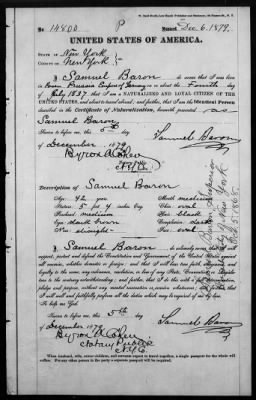 No. 14800
P
Issued Dec. 6. 1879.
UNITED STATES OF AMERICA.
STATE OF New York
COUNTY OF New York
I Samuel Baron do swear that I was born
in Prussia Empire of Germany on or about the Fourth
day of July 1837 that I am a NATURALIZED AND LOYAL CITIZEN OF THE
UNITED STATES, and about to travel abroad; and further, that I am the Identical Person
described in the Certificate of Naturalization, herewith presented as
Samuel Baron
Sworn to before me, this 5th
day of December 1879
Samuel Baron
Byron A Cohen
Description of Samuel Baron
Age: 42 years
Mouth: medium
Stature: 5 feet 4 inches
Chin: oval
Forehead: medium
Hair: black
Eyes: dark brown
Complexion: dark
Nose: straight
Face: oval
I Samuel Baron do solemnly swear that I will support, protect and defend the Constitution and Government of the United States against
all enemies, whether domestic or foreign; and that I will bear true faith, allegiance, and
loyalty to the same, any ordinance, resolution, or law of any State, Convention or Legislature
to the contrary notwithstanding; and further, that I do this with a full determination,
pledge and purpose, without any mental reservation or evasion whatsoever; and further, that
I will well and faithfully perform all the duties which may be required of me by law.
So help me God.
Sworn to before me, this 5th
day of December 1879
Samuel Baron
Byron A Cohen
Notary Public
N.Y.C.
When husband, wife, minor children, and servants expect to travel together, a single passport for the whole will
suffice. For any other person in the party a separate passport will be required.